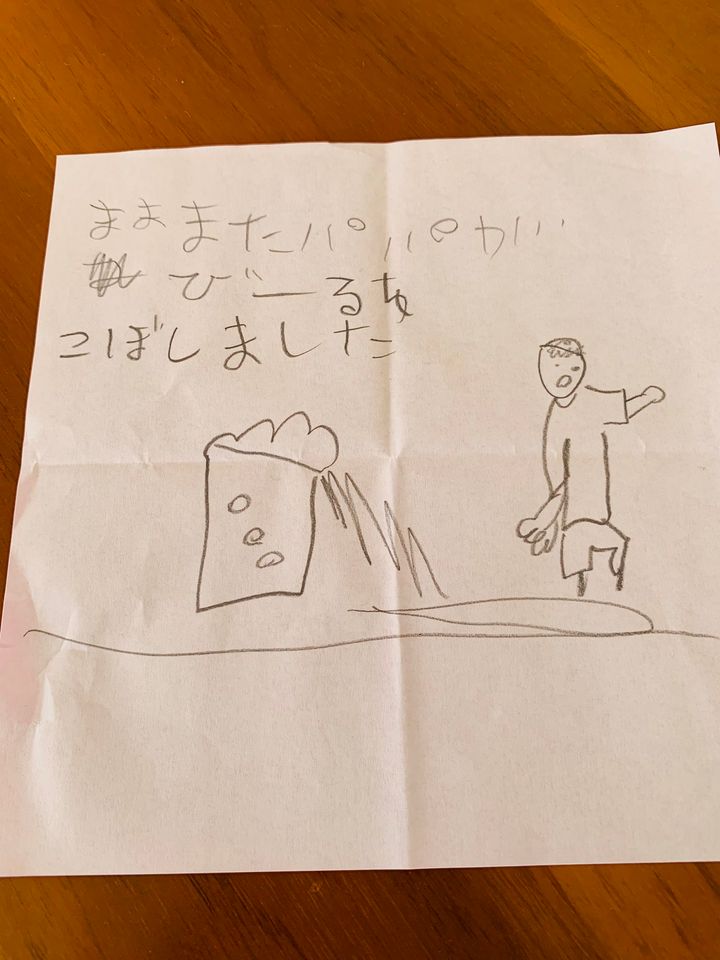 まままたパパが
びーるを
こぼしました